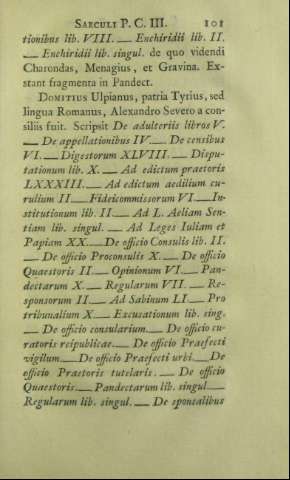 SAECULI P. C. III. 101
tionibus lib. VIII. — Enchiridii lib. II.
— Enchiridii lib. singul. de quo videndi
Charondas, Menagius, et Gravina. Ex-
stant fragmenta in Pandect.
DOMITIUS Ulpianus, patria Tyrius, sed
lingua Romanus, Alexandro Severo a con-
siliis fuit. Scripsit De adulteriis libros V.
— De appellationibus IV. — De censibus
VI. — Digestorum XLVIII. — Dispu-
tationum lib. X. — Ad edictum praetoris
LXXXIII. — Ad edictum aedilium cu-
rulium II — Fideicommissorum VI — In-
stitutionum lib. II — Ad L. Aeliam Sen-
tiam lib. singul. — Ad Leges Iuliam et
Papiam XX — De officio Consulis lib. II.
— De officio Proconsulis X. — De officio
Quaestoris II — Opinionum VI — Pan-
dectarum X. — Regularum VII. — Re-
sponsorum II — Ad Sabinum LI — Pro
tribunalium X — Excusationum lib. sing.
— De officio consularium — De officio cu-
ratoris reipublicae. — De officio Praefecti
vigilum — De officio Praefecti urbi. — De
officio Praetoris tutelaris. — De officio
Quaestoris. — Pandectarum lib. singul —
Regularum lib. singul. — De sponsalibus